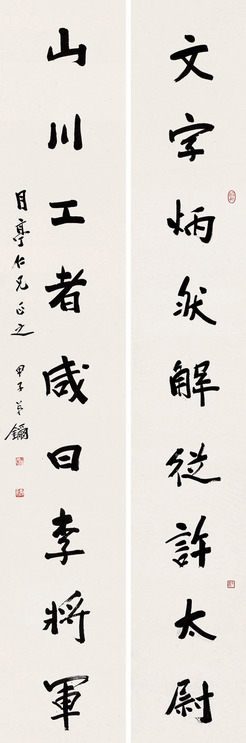 文字炳然解从許太尉
山川工者咸曰李將軍
目亭仁兄正之
甲子